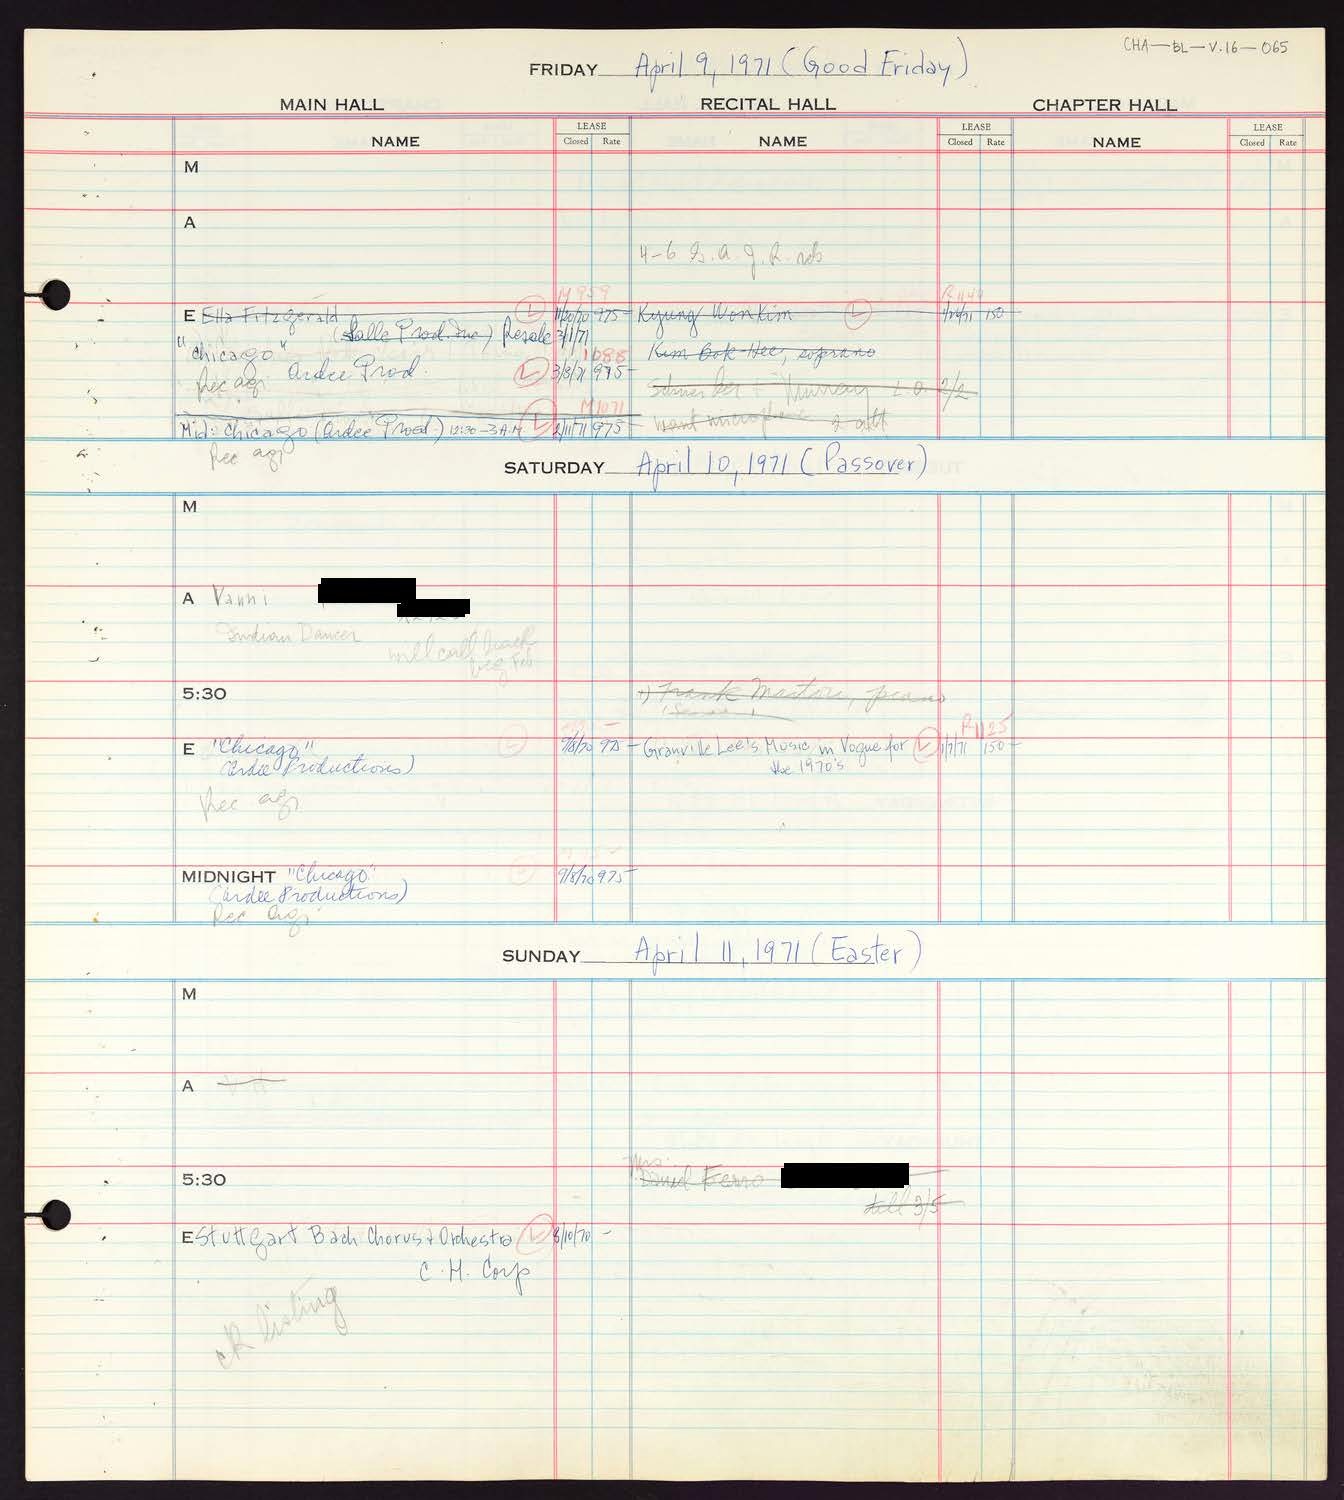 CHA-BL-V.16-065
FRIDAY April 9, 1971 (Good Friday)
MAIN HALL RECITAL HALL CHAPTER HALL
NAME LEASE Closed Rate NAME LEASE Closed Rate NAME LEASE Closed Rate
M
A
4-6
M959 R1144
E Ella Fitzgerald 11/20/70 975- Kyung Won Kim 150-
(Salle Prod. Inc) Resale 3/1/71
"Chicago" Kim Bok Hee, soprano
1088
Rec agr Ardee Prod. 3/8/71 975-
Murray L.O. 2/2
M1071
Mid: Chicago (Ardee Prod.) 12:30-3 A.M. 2/11/71 975- want microphone
Rec agr
SATURDAY April 10, 1971 (Passover)
M
A Vanni
Indian Dancer
will call back
beg Feb
5:30 Frank piano
R1125
E "Chicago" 9/8/70 975- Granville Lee's Music in Vogue for 1/7/71 150-
Ardee Productions) the 1970's
Rec agr
MIDNIGHT "Chicago" 9/8/70 975-
(Ardee Productions)
Rec agr
SUNDAY April 11, 1971 (Easter)
M
A
Mrs.
5:30 Daniel Ferro
till 3/5
E Stuttgart Bach Chorus + Orchestra 8/10/70 -
C.H. Corp
ck listing